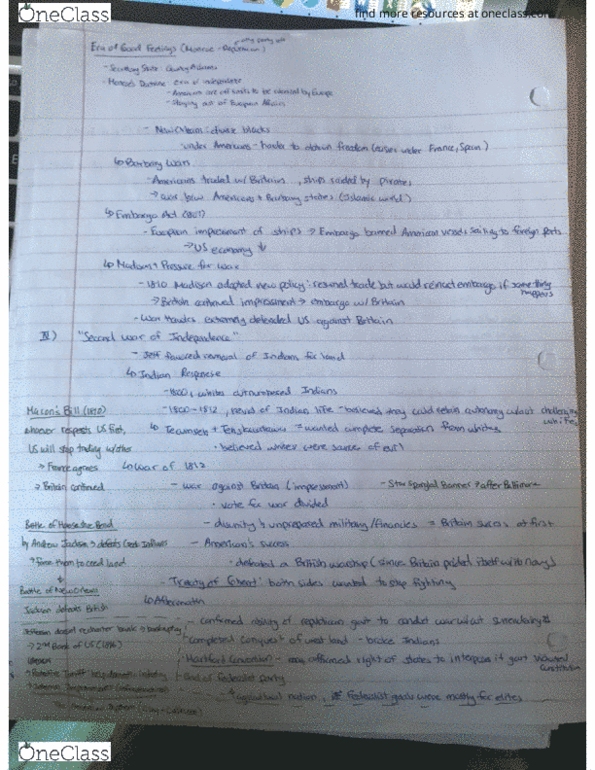 OneClass
find more resources at oneclass.com
Era of Good Feelings (Monroe -
- Secretary State: Quincy Adams
- Monroe's Doctrine: era of
- Americas are not to be colonized by Europe
- Staying out of European Affairs
- New Orleans: divide blacks
under Americans - harder to obtain freedom (easier under France, Spain)
↳ Barbary Wars
- Americans traded w/ Britain, ships raided by pirates
→ war btwn Americans + Barbary states (Islamic world)
↳ Embargo Act (1807)
- European impressment of ships → Embargo banned American vessels sailing to foreign ports
→ US economy ↓
↳ Madison + Pressure for War
- 1810 Madison adopted new policy: resumed trade but would reinact embargo if something happens
→ British continued impressment → embargo w/ Britain
- War Hawks extremely defended US against Britain
IV) "Second War of Independence"
- Jeff favored removal of Indians for land
↳ Indian Response
- 1800, whites outnumbered Indians
Macon's Bill (1810)
- 1800-1812, period of Indian life - believed they could retain autonomy without challenging whites
whoever respects US first,
↳ Tecumseh + Tenskwatawa = wanted complete separation from whites
US will stop trading w/ other
· believed whites were source of evil
→ France agrees
↳ War of 1812
→ Britain continued
- war against Britain (impressment)
- Star Spangled Banner → after Baltimore
· vote for war divided
Battle of Horseshoe Bend
- disunity + unprepared military/finances = Britain success at first
by Andrew Jackson → defeats Creek Indians
- American's success
→ force them to cede land
· defeated a British warship (since Britain prided itself with navy)
Battle of New Orleans
- Treaty of Ghent: both sides wanted to stop fighting
Jackson defeats British
↳ Aftermath
Jefferson doesn't recharter bank → bankruptcy
- confirmed ability of republican govt to conduct war without surrendering
→ 2nd Bank of US (1816)
· completed conquest of west land - broke Indians
· Hartford Convention - affirmed right of states to interpose if govt violated Constitution
→ Protective Tariff
· End of federalist party
→ Internal Improvements (infrastructure)
↳ agricultural nation, federalist goals were mostly for elites
The American System (Clay + Calhoun)
OneClass